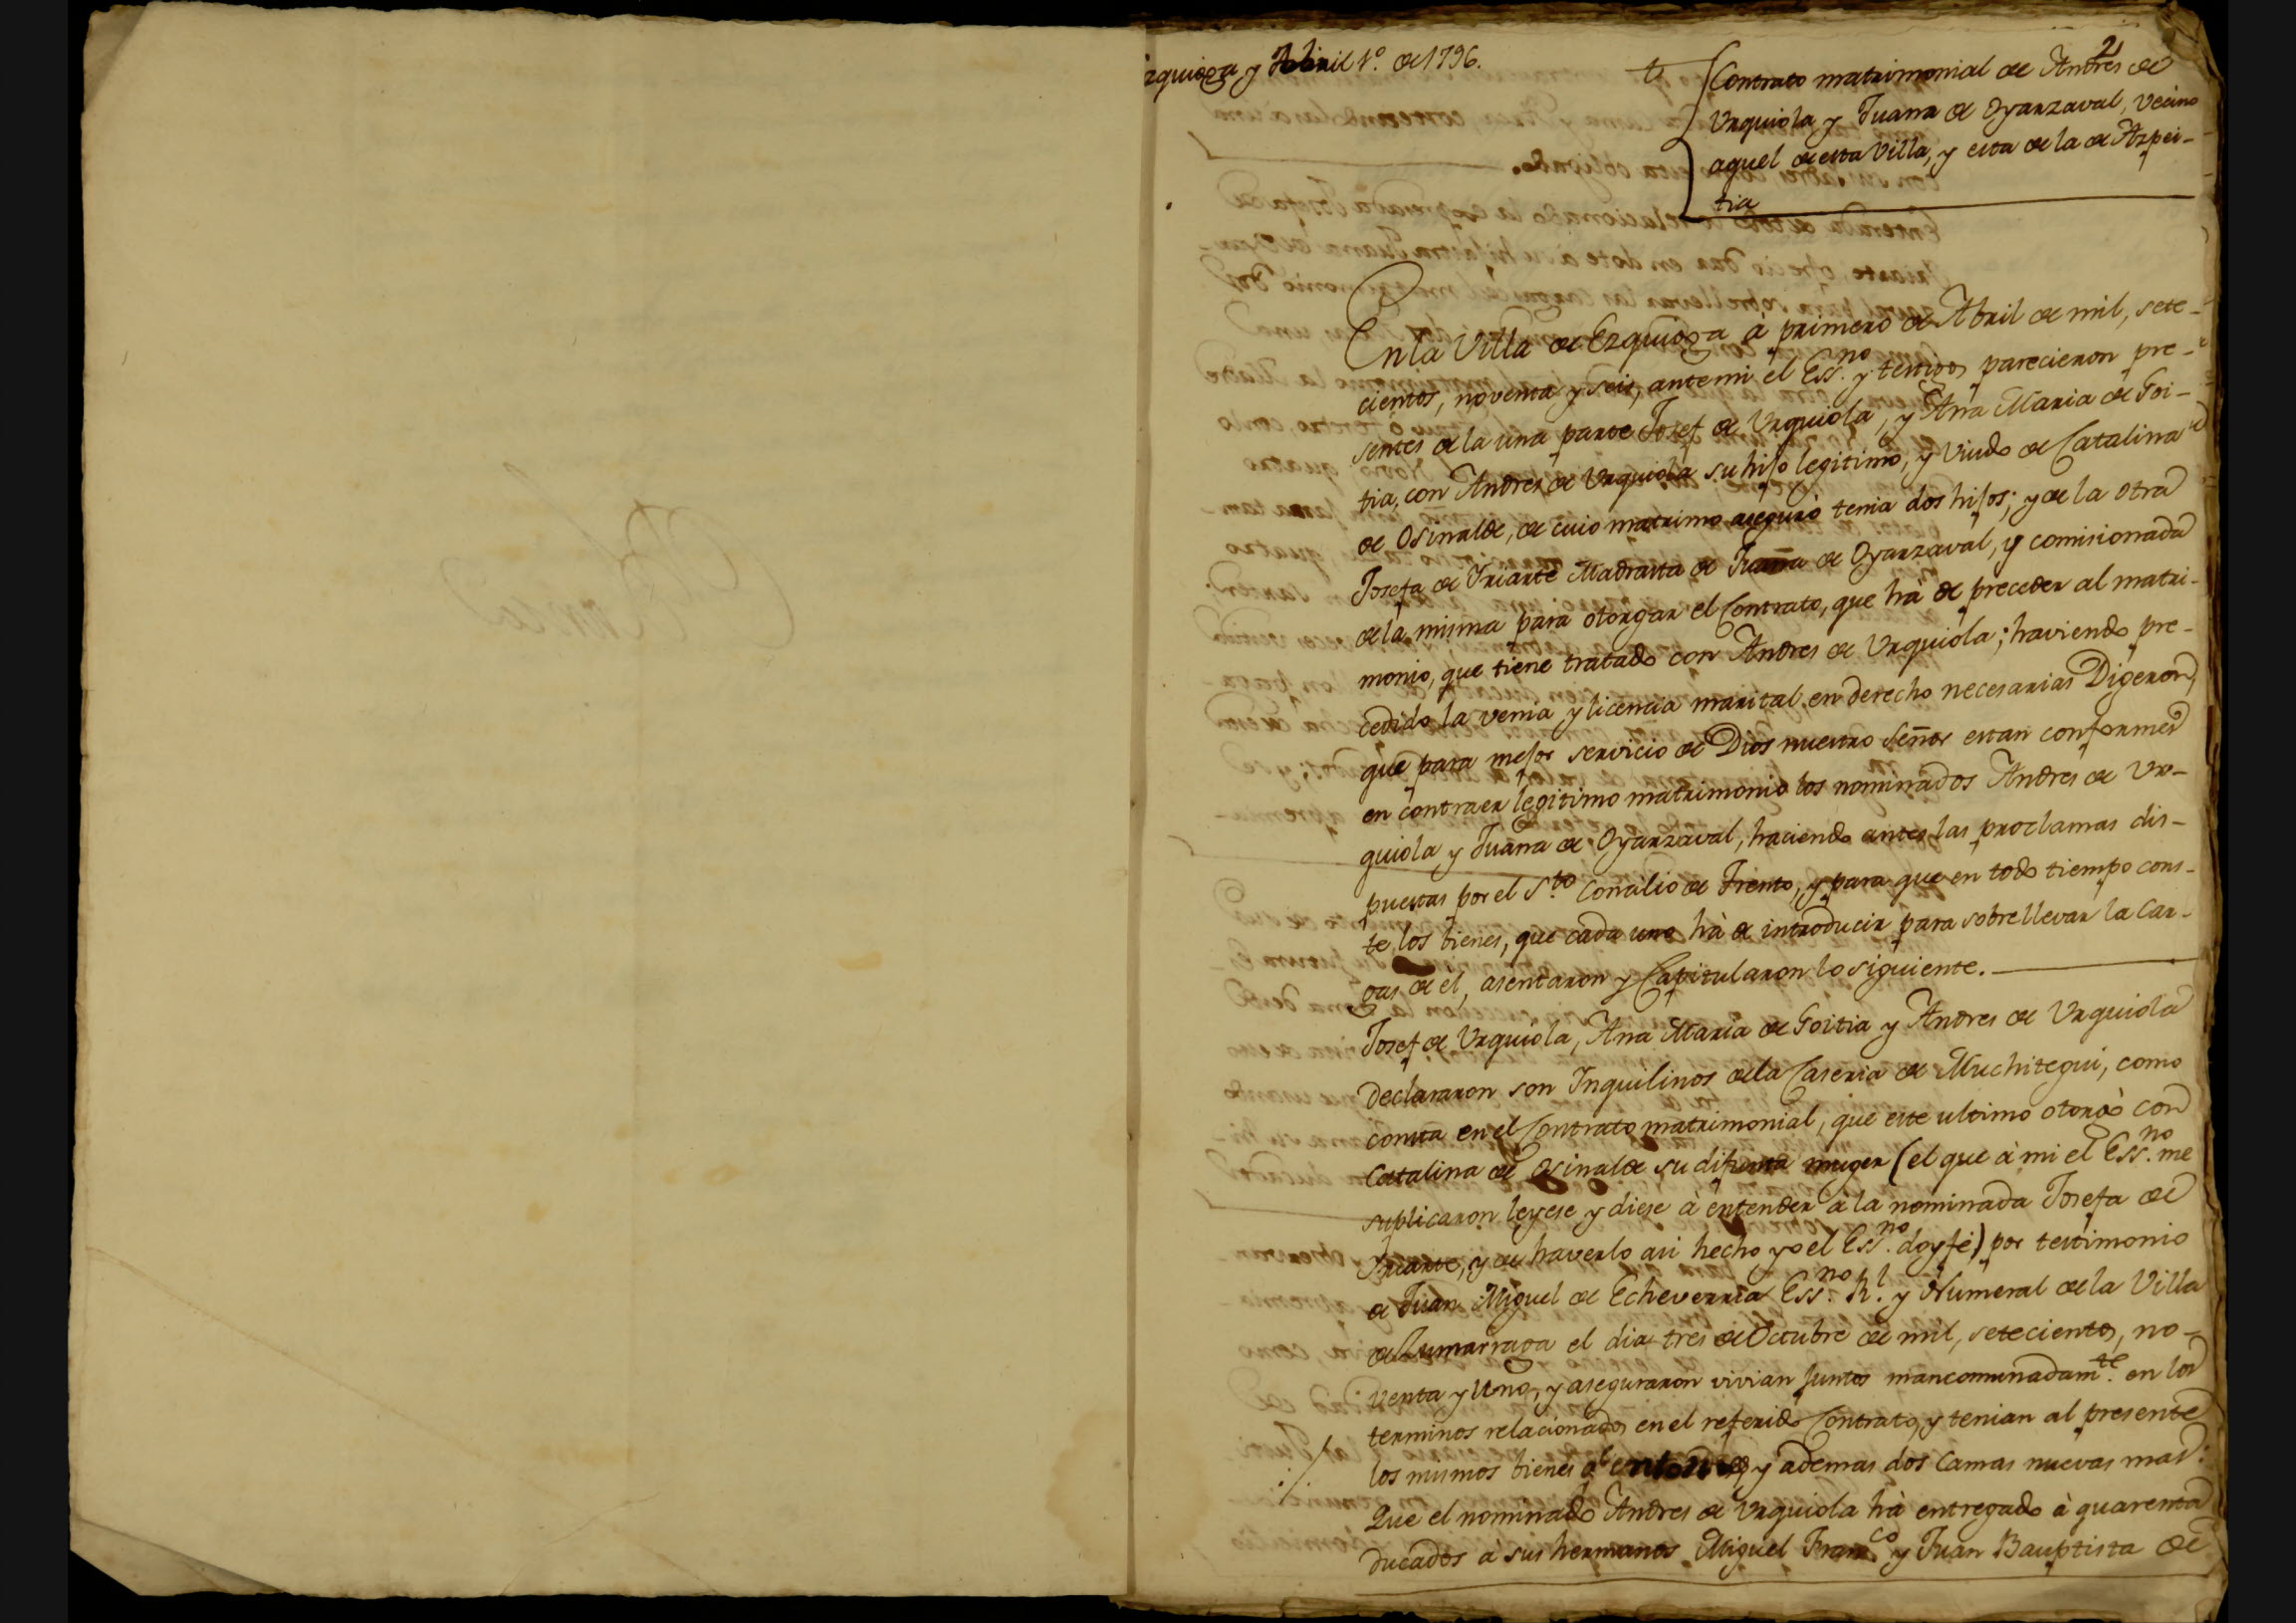 zquioga y Abril 1º. de 1796.
2
Contrato matrimonial de Andres de
Urquiola y Juana de Oyarzaval, vecino
aquel de esta Villa, y esta de la de Azpei-
tia
En la Villa de Ezquioga à primero de Abril de mil, sete-
cientos, noventa y seis, ante mi el Ess.no y testigos parecieron pre-
sentes de la una parte Josef de Urquiola, y Ana Maria de Goi-
tia, con Andres de Urquiola su hijo legitimo, y Viudo de Catalina
de Osinalde, de cuio matrimo aseguró tenia dos hijos; y de la otra
Josefa de Yriarte Madrasta de Juana de Oyarzaval, y comisionada
de la misma para otorgar el Contrato, que hà de preceder al matri-
monio, que tiene tratado con Andres de Urquiola; haviendo pre-
cedido la venia y licencia marital en derecho necesarias Digeron,
que para mejor servicio de Dios nuestro Señor estan conformes
en contraer legitimo matrimonio los nominados Andres de Ur-
quiola y Juana de Oyarzaval, haciendo antes las proclamas dis-
puestas por el S.to Concilio de Trento, y para que en todo tiempo cons-
te los bienes, que cada uno hà de introducir para sobrellevar la Car-
gas de él, asentaron y Capitularon lo siguiente.
Josef de Urquiola, Ana Maria de Goitia y Andres de Urquiola
declararon son Inquilinos de la Caseria de Muchitegui, como
consta en el Contrato matrimonial, que este ultimo otorgò con
Catalina de Osinalde su difunta muger (el que à mi el Ess.no me
suplicaron leyese y diese à entender à la nominada Josefa de
Yriarte, y de haverlo asi hecho yo el Ess.no doy fé) por testimonio
de Juan Miguel de Echeverria Ess.no R.l y Numeral de la Villa
de Zumarraga el dia tres de Octubre de mil, setecientos, no-
venta y Uno, y aseguraron vivian juntos mancomunadam.te en los
terminos relacionados en el referido Contrato, y tenian al presente
los mismos bienes q.e entonces y ademas dos Camas nuevas mas:
Que el nominado Andres de Urquiola hà entregado à quarenta
ducados a sus hermanos Miguel Fran.co y Juan Bauptista de